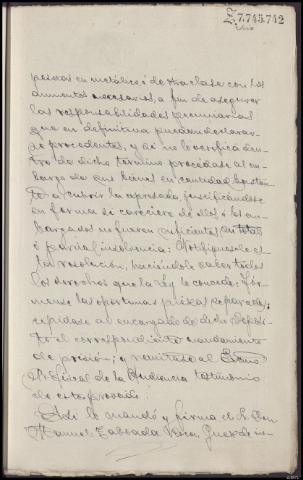 Z.7.745.742
pesetas en metálico ó de otra clase con los
aumentos necesarios, a fin de asegurar
las responsabilidades pecuniarias
que en definitiva puedan declarar-
se procedentes, y de no lo verifica den-
tro de dicho término procédase al em-
bargo de sus bienes en cantidad bastan-
te a cubrir la expresada, justificándose
en forma si careciere de ellos ó los em-
bargados no fueran suficientes su total
ó parcial insolvencia: Notifíquesele es-
ta resolución, haciéndole saber todos
los derechos que la ley le concede: Fór-
mense las oportunas piezas separadas;
expídase al encargado de dicho Depósi-
to el correspondiente mandamiento
de prisión; y remítase al Excmo
Sr. Fiscal de la Audiencia testimonio
de este proveido:
Así lo mandó y firma el Sr. Don
Manuel Taboada Juez de in-